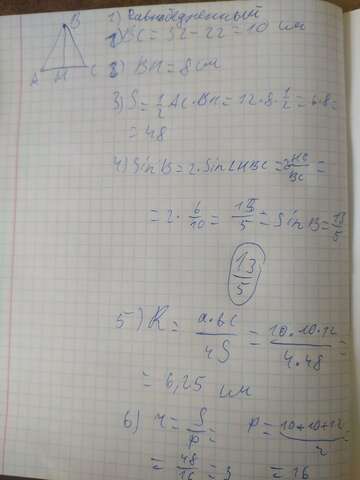 B
A H C
1) Равнобедренный
2) BC = 32 - 22 = 10 см
2) BH = 8 см
3) S = 1/2 AC · BH = 12 · 8 · 1/2 = 6 · 8 =
= 48
4) Sin B = 2 · Sin ∠HBC = 2 HC/BC =
= 2 · 6/10 = 13/5 = Sin B = 13/5
13/5
5) R = a·bc/4S = 10·10·12/4·48 =
= 6,25 см
6) r = S/p = P = 10+10+12/2 =
= 48/16 = 3 = 16